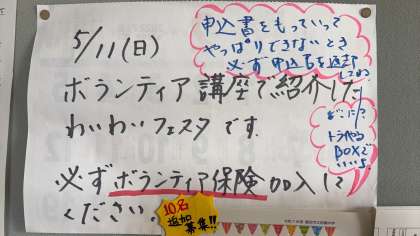 5/11(日)
ボランティア講座で紹介した
わいわいフェスタです.
必ずボランティア保険加入して
ください。
申込書をもっていって
やっぱりできないとき
必ず申込書を返す
BOXで
10名
追加
募集!!